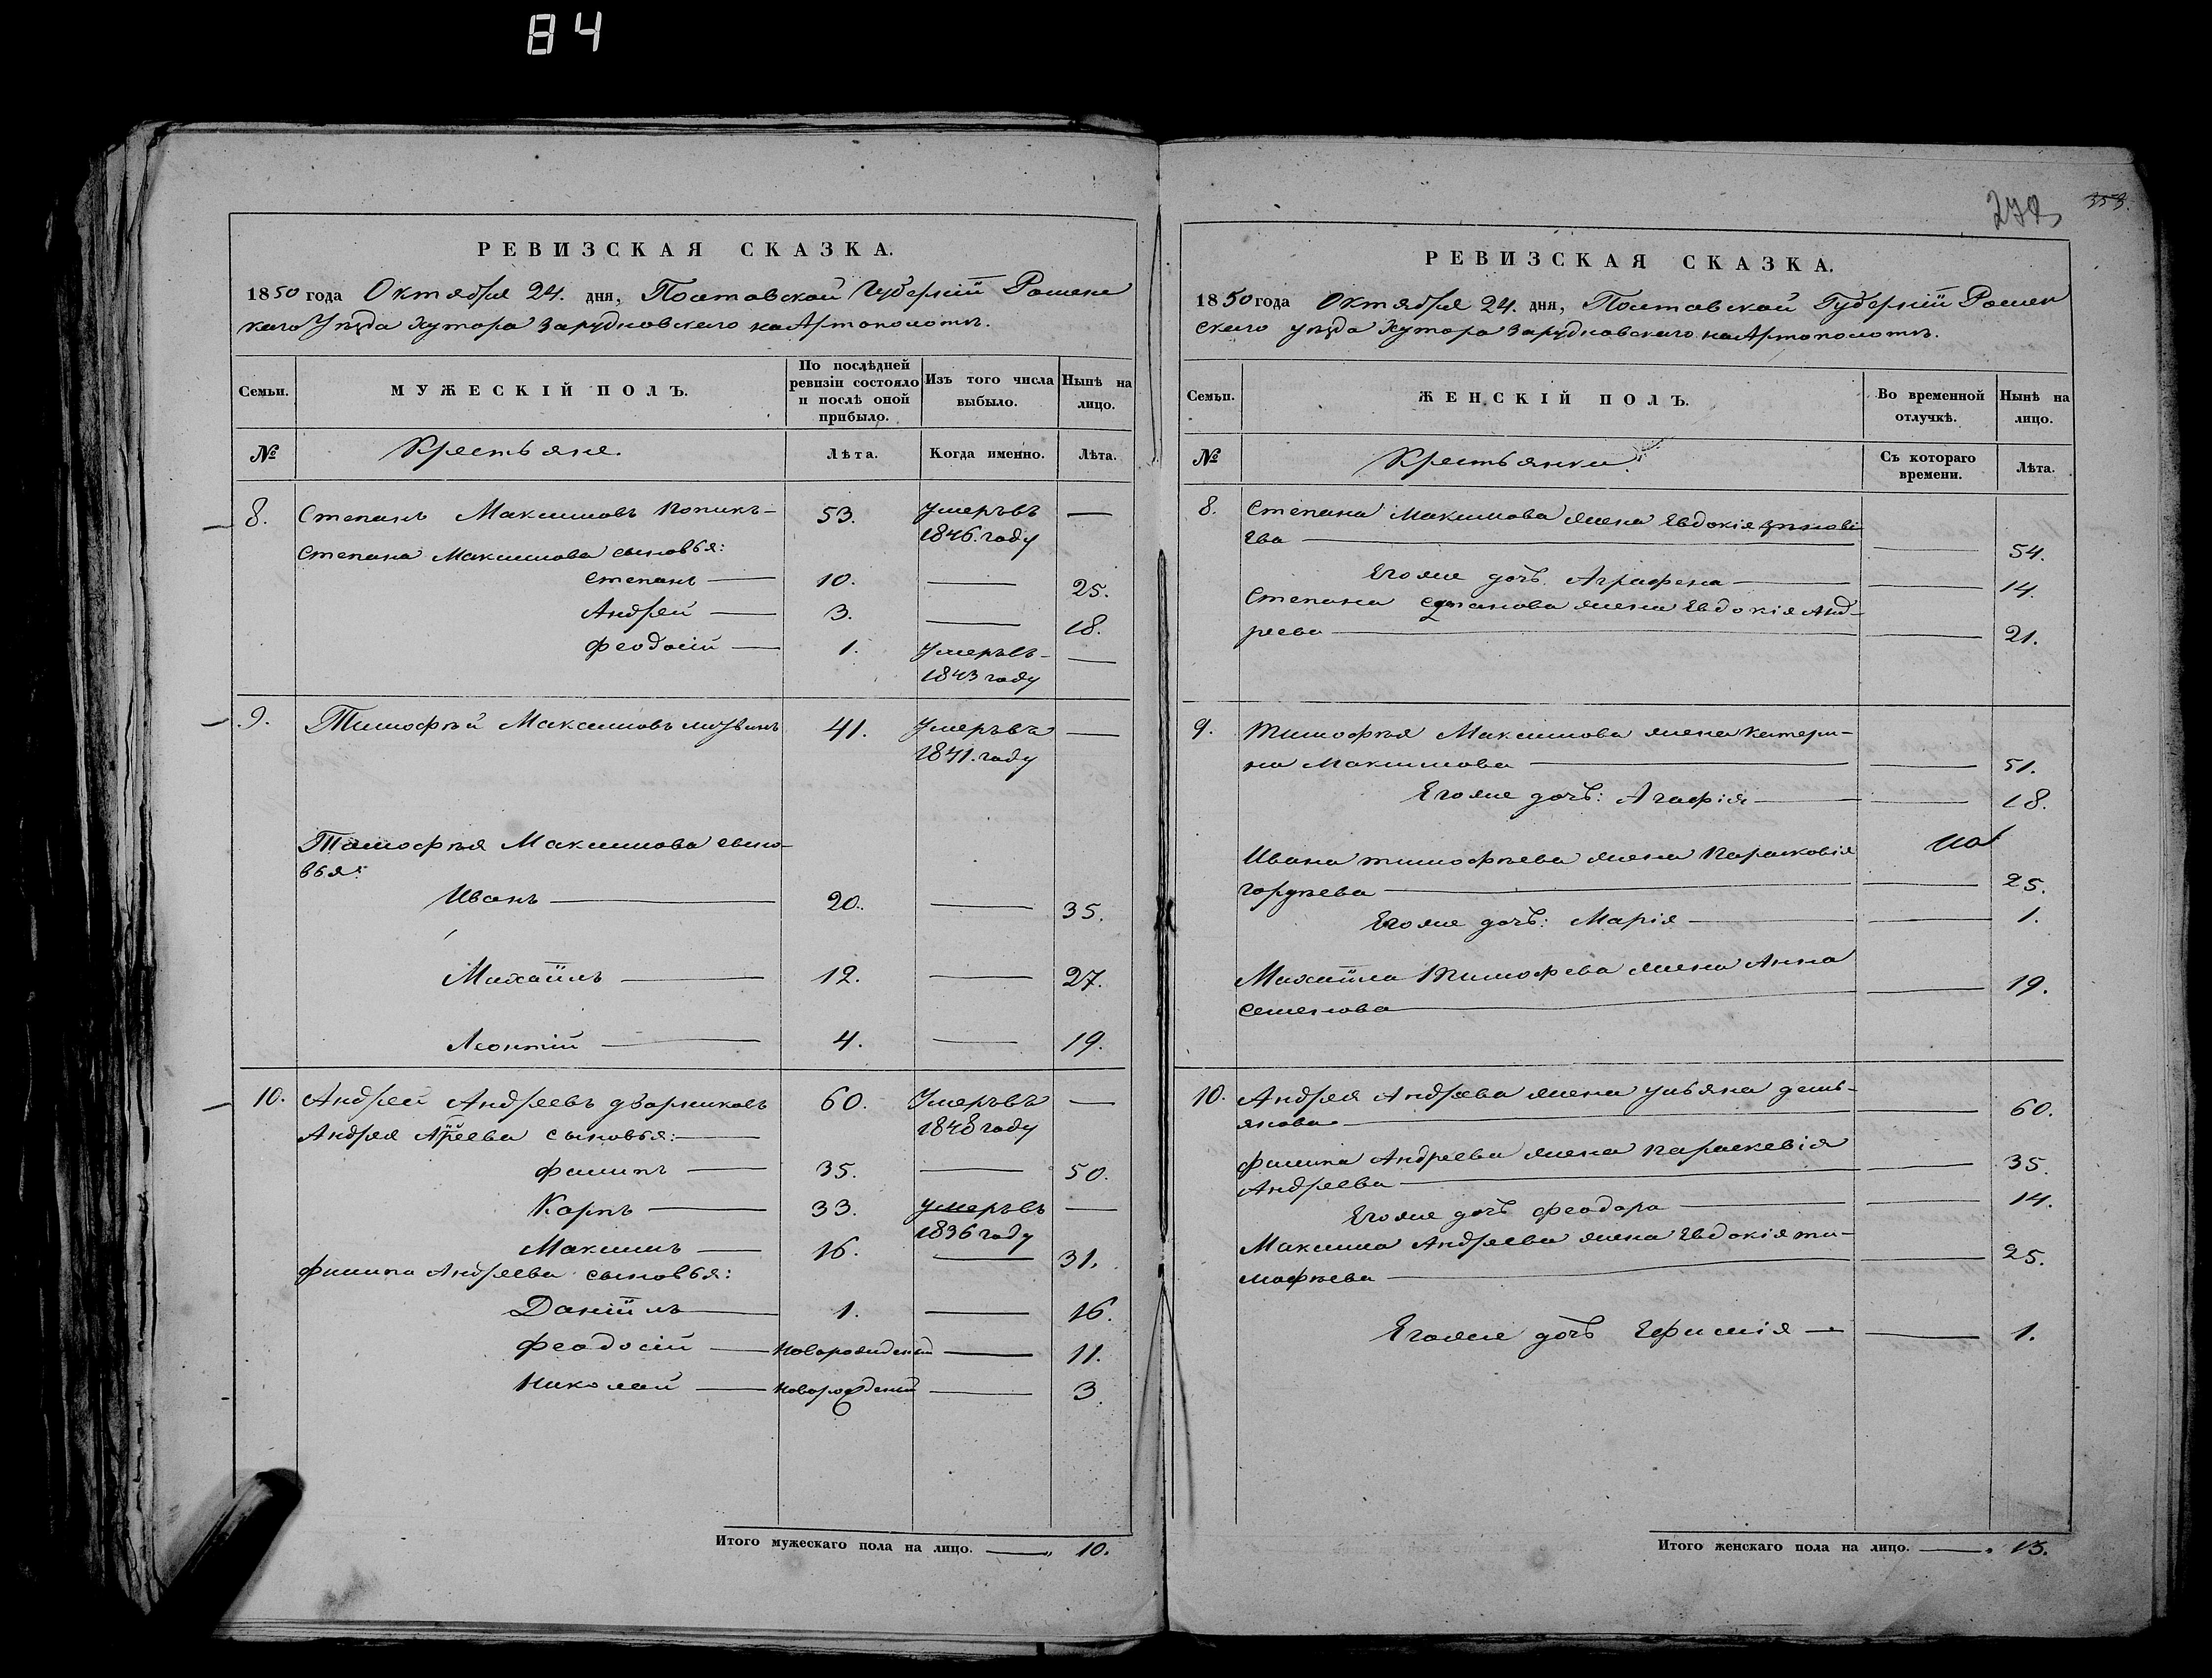 84
РЕВИЗСКАЯ СКАЗКА.
1850 года Октября 24. дня, Полтавской Губерніи Ромен
скаго Уѣзда Хутора Зарудновскаго на Артополотѣ.
Семьи.
МУЖЕСКІЙ ПОЛЪ.
По послѣдней ревизіи состояло и послѣ оной прибыло.
Изъ того числа выбыло.
Нынѣ на лицо.
№
Крестьяне.
Лѣта.
Когда именно.
Лѣта.
8. Степанъ Максимовъ Попикъ- 53. Умеръ въ —
1846. году
Степана Максимова сыновья:
Степанъ — 10. — 25.
Андрей — 3. — 18.
Феодосій — 1. Умеръ въ- —
1843 году
9. Тимофѣй Максимовъ 41. Умеръ въ —
1841. году
Тимофѣя Максимова сыно-
вья:
Иванъ — 20. — 35.
Михаилъ — 12. — 27.
Леонтій — 4. — 19.
10. Андрей Андреевъ Дворниковъ 60. Умеръ въ —
1848 году
Андрея сыновья: —
Филипъ — 35. — 50.
Карпъ — 33. умеръ въ —
1836 году
Максимъ — 16. — 31.
Филипа Андреева сыновья:
Даніилъ — 1. — 16.
Феодосій — новорожденый — 11.
Николай — новорожденый — 3.
Итого мужескаго пола на лицо. — 10.
272
353.
РЕВИЗСКАЯ СКАЗКА.
1850 года Октября 24. дня, Полтавской Губерніи Ромен
скаго уѣзда Хутора Зарудновскаго на Артополотѣ.
Семьи.
ЖЕНСКІЙ ПОЛЪ.
Во временной отлучкѣ.
Нынѣ на лицо.
№
Крестьянки.
Съ котораго времени.
Лѣта.
8. Степана Максимова жена Евдокія Зѣнові
ева — — 54.
Его же дочь. Аграфена — — 14.
Степана Степанова жена Евдокія Анд-
реева — — 21.
9. Тимофѣя Максимова жена Катери-
на Максимова — — 51.
Его же дочь: Агафія — — 18.
Ивана Тимофѣева жена Парасковія
Гордѣева — — 25.
Его же дочь: Марія — — 1.
Михаила Тимофева жена Анна
Семенова — — 19.
10. Андрея Андрева жена Ульяна Демь-
янова — — 60.
Филипа Андреева жена Параскевія
Андреева — — 35.
Его же дочь Феодора — — 14.
Максима Андреева жена Евдокія Ти-
мофѣева — — 25.
Его же дочь Ефимія — — 1.
Итого женскаго пола на лицо. — 13.